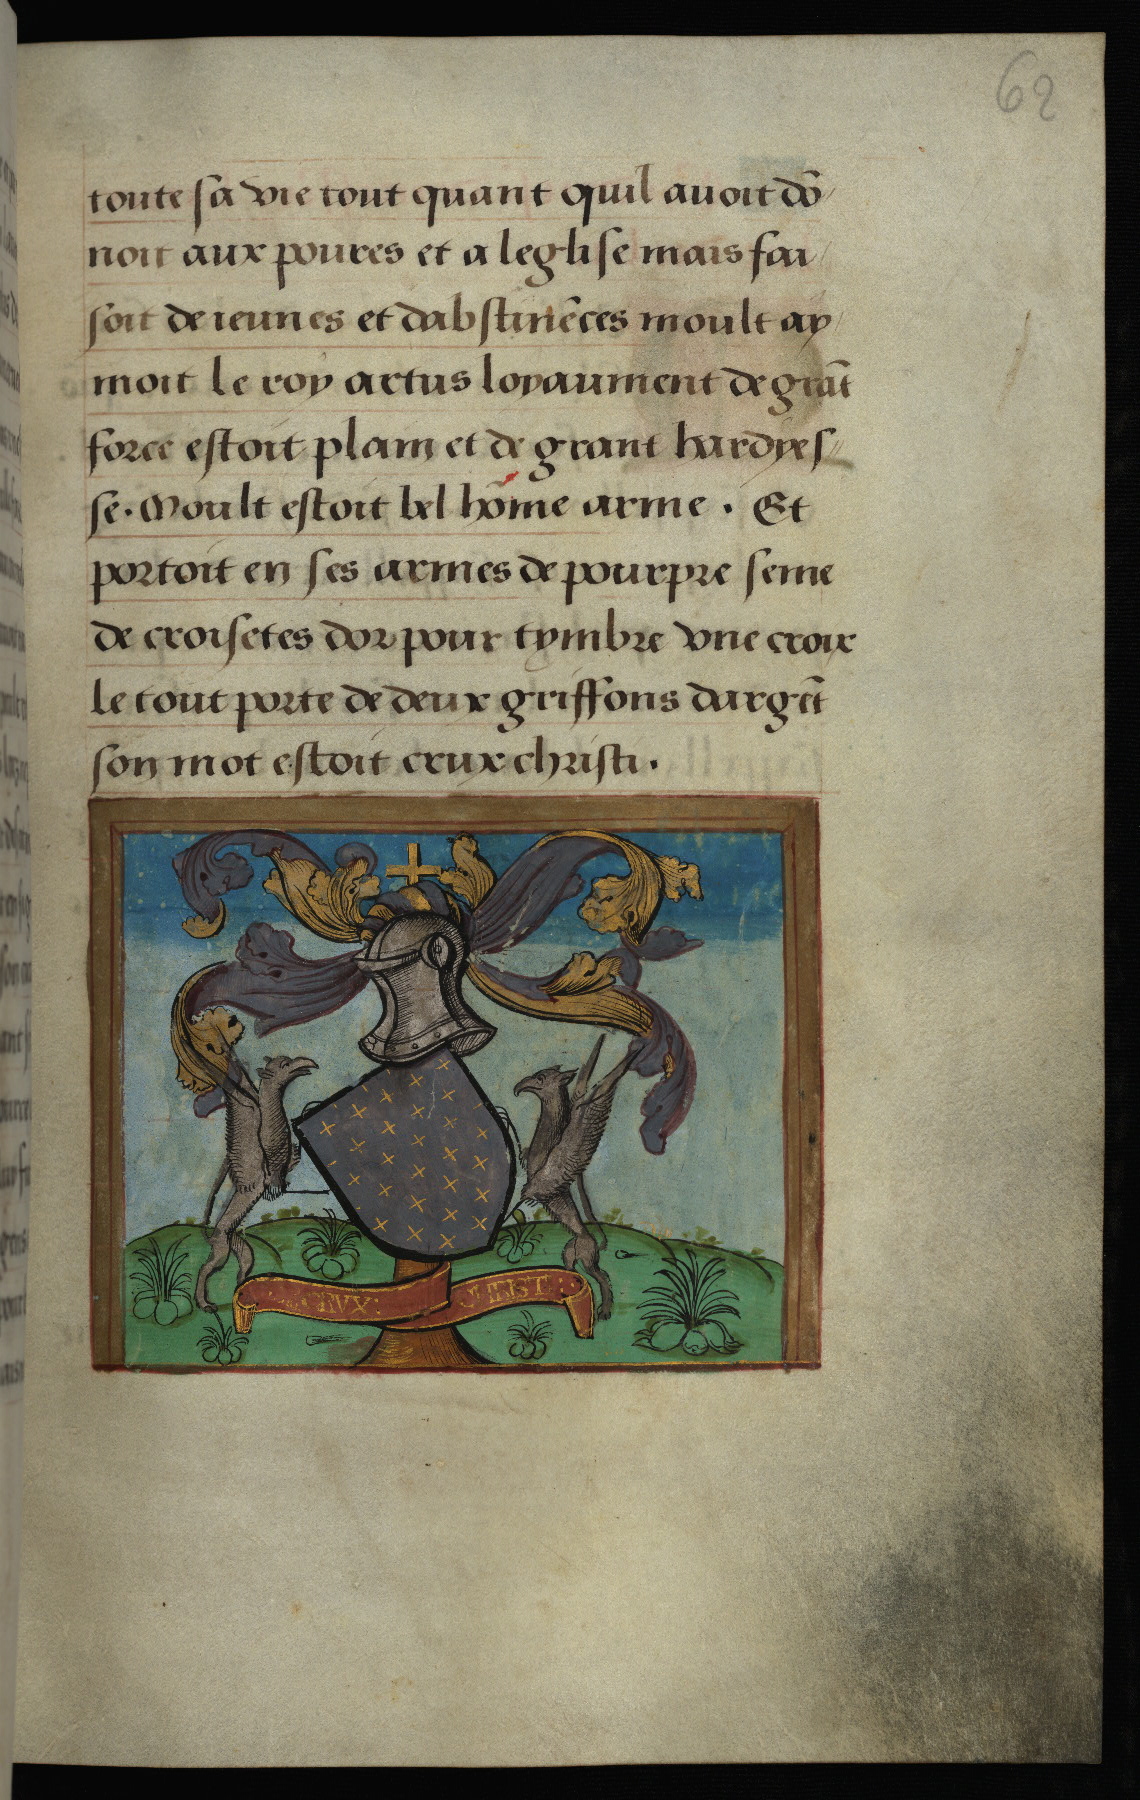 62
toute sa vie tout quant quil auoit dō/
noit aux poures et a leglise mais fai/
soit de ieunes et dabstinēces moult ay/
moit le roy artus loyaument de grāt
force estoit plain et de grant hardyes//
se. Moult estoit bel hōme arme. Et
portoit en ses armes de pourpre seme
de croisetes dor pour tymbre vne croix
le tout porte de deux griffons dargēt
son mot estoit crux christi.
CRVX: